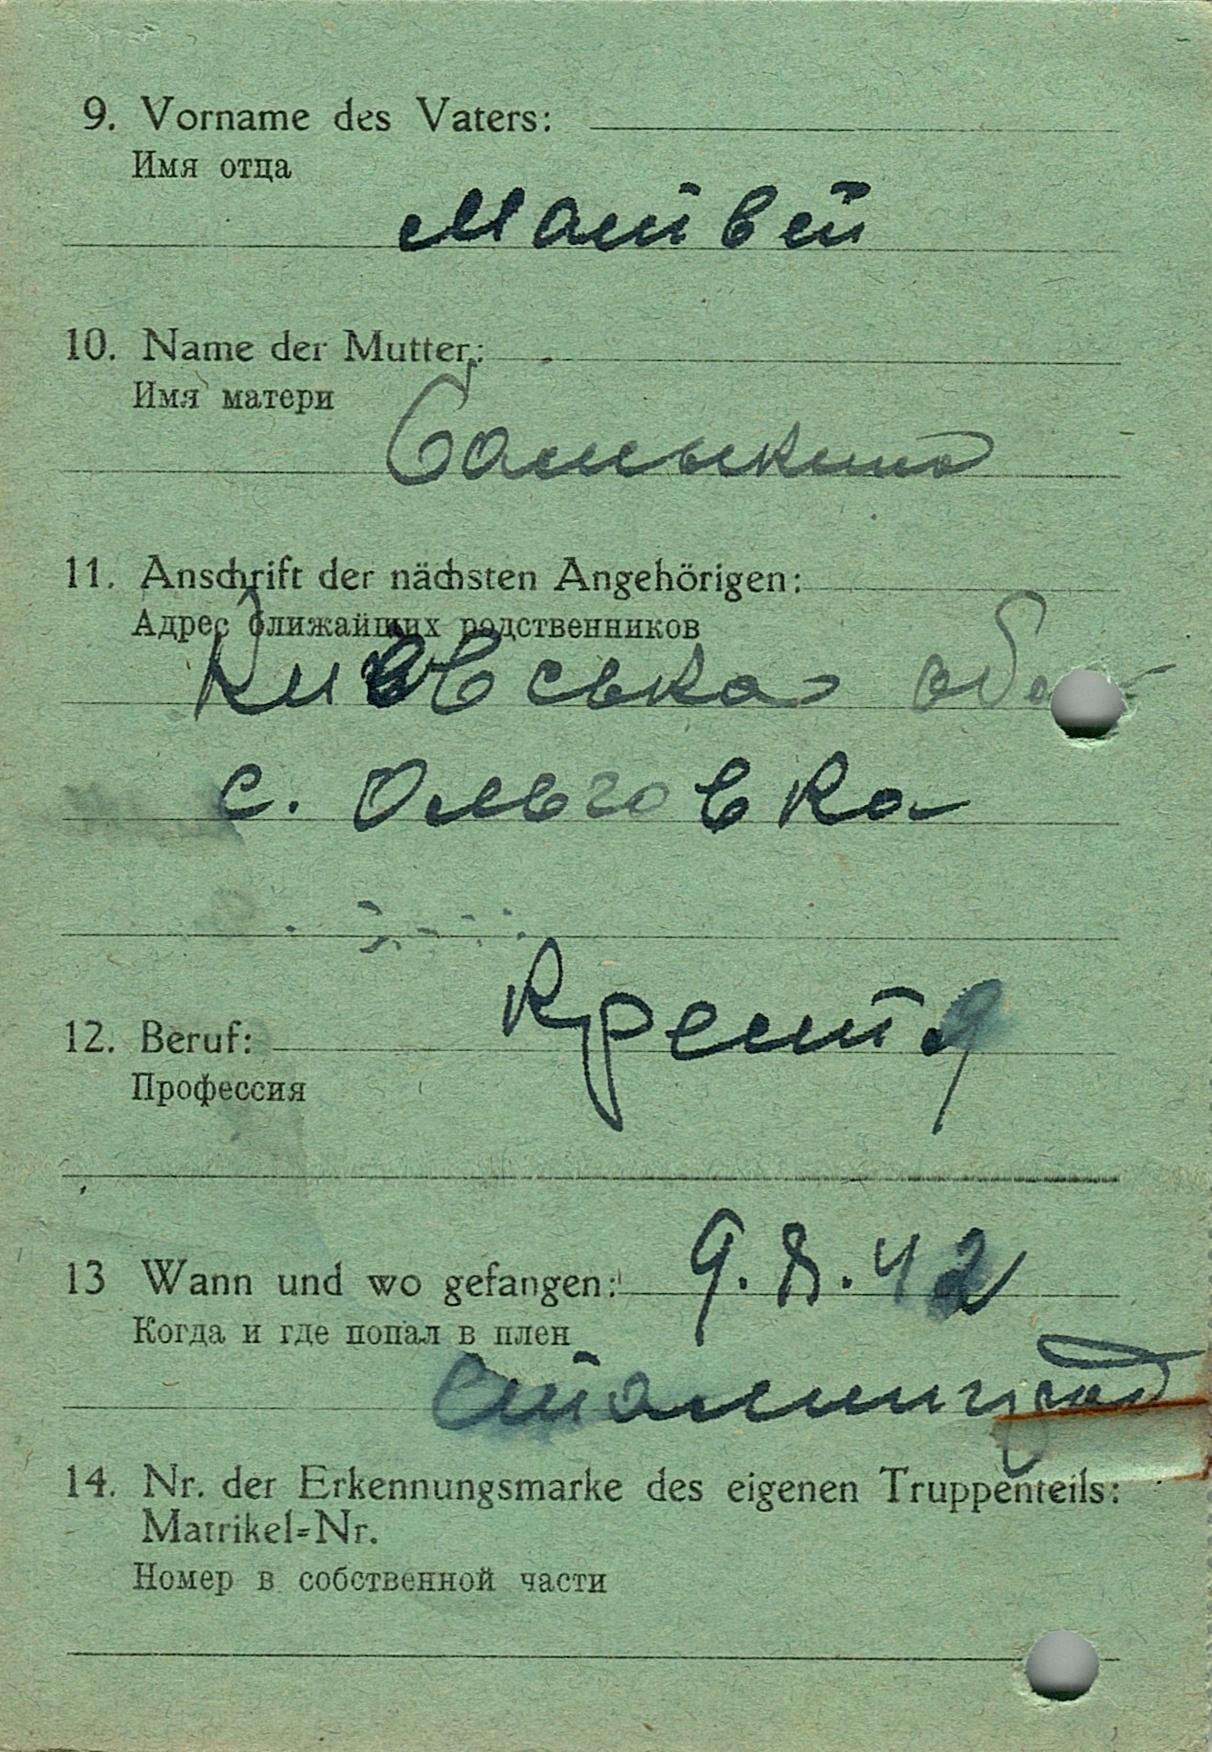 9. Vorname des Vaters:
Имя отца
Матвей
10. Name der Mutter:
Имя матери
11. Anschrift der nächsten Angehörigen:
Адрес ближайших родственников
Київська об
с. Ольговка
12. Beruf:
Профессия
13 Wann und wo gefangen: 9.8.42
Когда и где попал в плен
Сталинград
14. Nr. der Erkennungsmarke des eigenen Truppenteils:
Matrikel=Nr.
Номер в собственной части